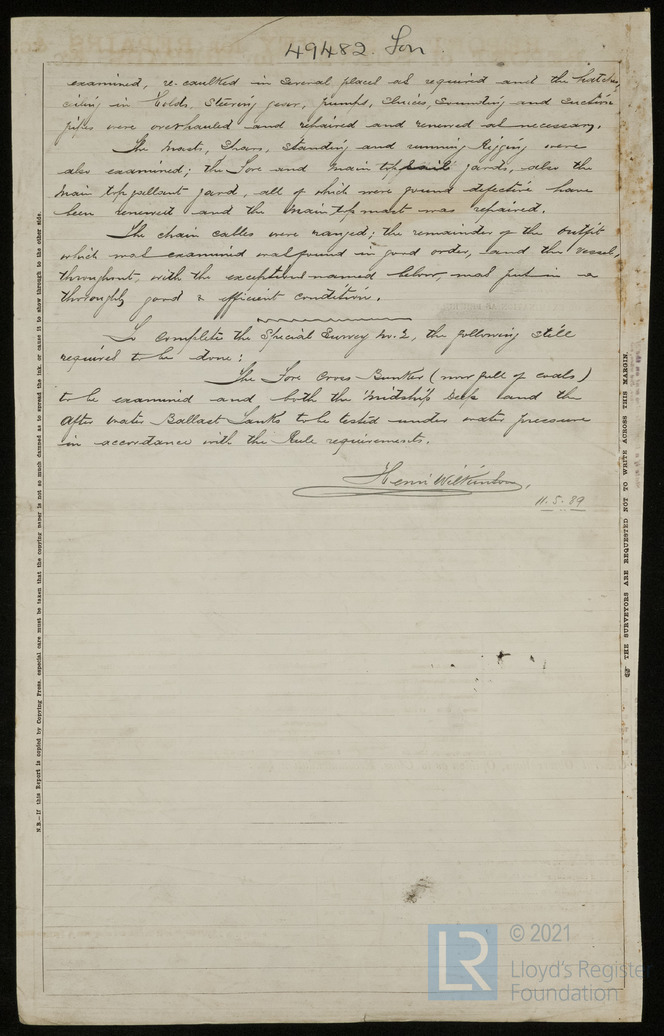 49482. Lon
examined, re-caulked in several places as required and the hatches,
ceiling in Holds, Steering gear, pumps, Sluices, Sounding and Suction
pipes were overhauled and repaired and renewed as necessary.
The Masts, Spars, Standing and running Rigging were
also examined; the Fore and Main topsail yards, also the
Main topgallant yard, all of which were found defective have
been renewed and the Main topmast was repaired.
The chain cables were ranged; the remainder of the outfit
which was examined was found in good order, and the vessel,
throughout, with the exceptions named below, was put in a
thoroughly good & efficient condition.
To complete the Special Survey No. 2, the following still
required to be done:
The Fore Cross Bunker (now full of coals)
to be examined and both the Midship Deep and the
After Water Ballast Tanks to be tested under water pressure
in accordance with the Rule requirements.
Henri Wilkinson.
11.5.89
N.B.—If this Report is copied by Copying Press, especial care must be taken that the copying paper is not so much damped as to spread the ink, or cause it to show through to the other side.
THE SURVEYORS ARE REQUESTED NOT TO WRITE ACROSS THIS MARGIN.
LR
© 2021
Lloyd's Register
Foundation